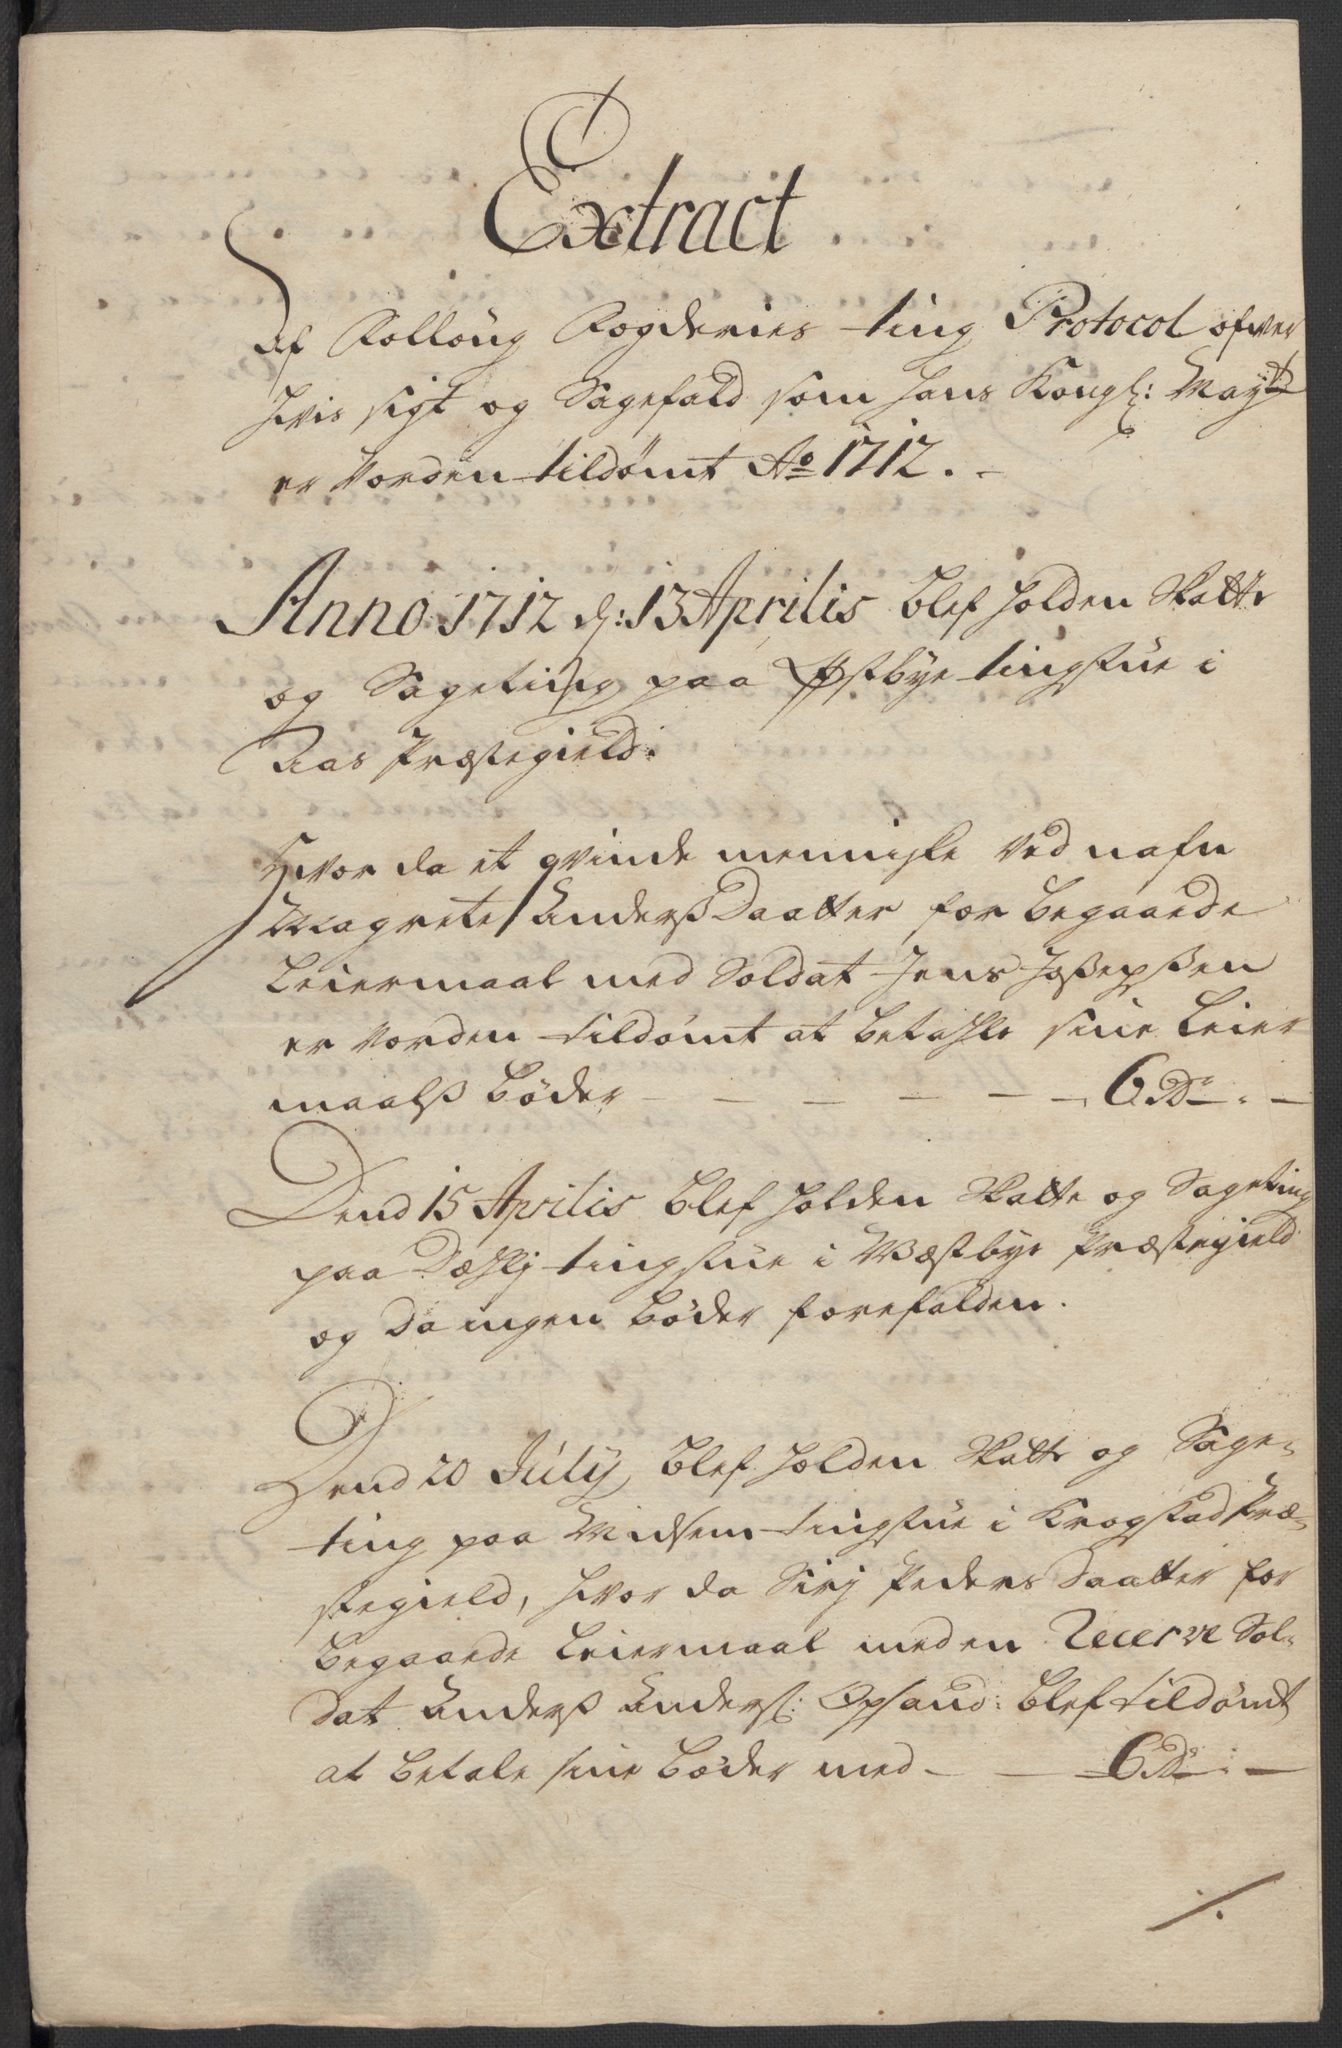 Extract
Af Folloug Fogderies ting Protocol ofver
hvis sigt og Sagefald som hans Kongl: Mayt
er vorden tildømt Ao 1712.
Anno 1712 d: 13 Aprilis blef holden Skatte
og Sageting paa Østbye tingstue i
Aas Præstegield.
Hvor da et qvinde menniske ved nafn
Magrete Anderß Daatter for begaaede
Leiermaal med Soldat Jens Joßepßen
er vorden tildømt at betahle sine Leier
maalß bøder 6 Dr
Dend 15 Aprilis blef holden Skatte og Sageting
paa Dæhlj tingstue i Wæstbye Præstegield
og da ingen bøder forefalden.
Dend 20 July blef holden Skatte og Sage-
ting paa Midsem tingstue i Krogstad Præ-
stegield, hvor da Sirj Peders Daatter for
begaaede Leiermaal med en Recerve Sol-
dat Anderß Andersl: Opsand: blef tildømt
at betale sine bøder med 6 Dr